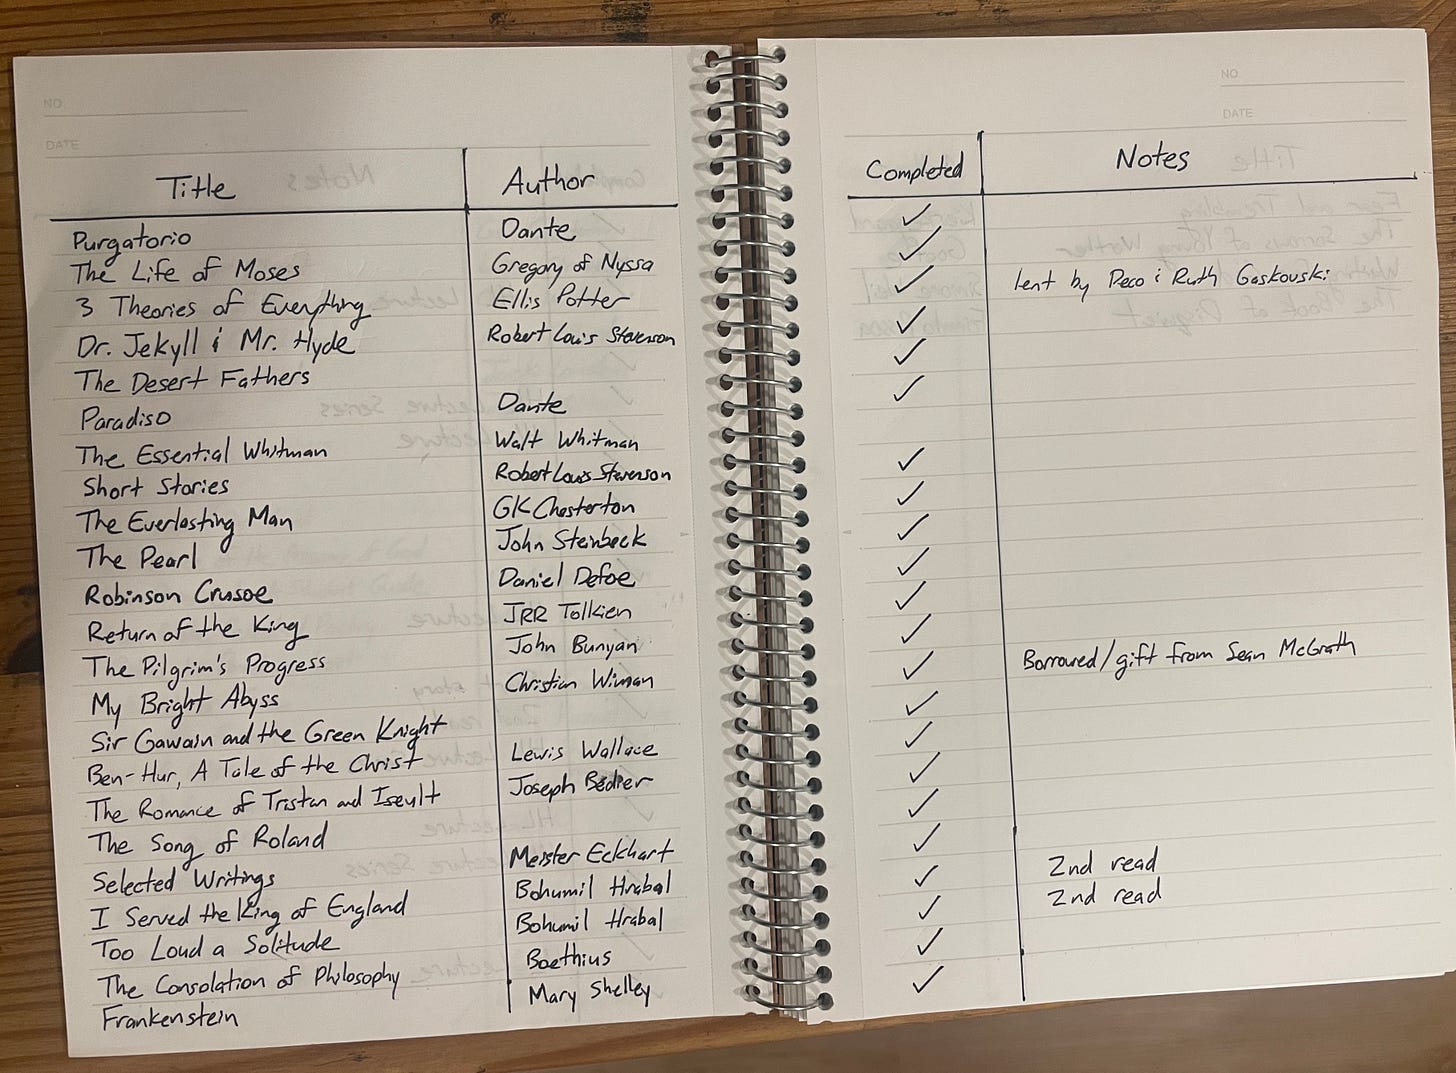 NO.
DATE
Title Author
Purgatorio Dante
The Life of Moses Gregory of Nyssa
3 Theories of Everything Ellis Potter
Dr. Jekyll & Mr. Hyde Robert Louis Stevenson
The Desert Fathers
Paradiso Dante
The Essential Whitman Walt Whitman
Short Stories Robert Louis Stevenson
The Everlasting Man GK Chesterton
The Pearl John Steinbeck
Robinson Crusoe Daniel Defoe
Return of the King JRR Tolkien
The Pilgrim's Progress John Bunyan
My Bright Abyss Christian Wiman
Sir Gawain and the Green Knight
Ben-Hur, A Tale of the Christ Lewis Wallace
The Romance of Tristan and Iseult Joseph Bédier
The Song of Roland
Selected Writings Meister Eckhart
I Served the King of England Bohumil Hrabal
Too Loud a Solitude Bohumil Hrabal
The Consolation of Philosophy Boethius
Frankenstein Mary Shelley
NO.
DATE
Completed Notes
lent by Peco & Ruth Gaskovski
Borrowed/gift from Sean McGrath
2nd read
2nd read